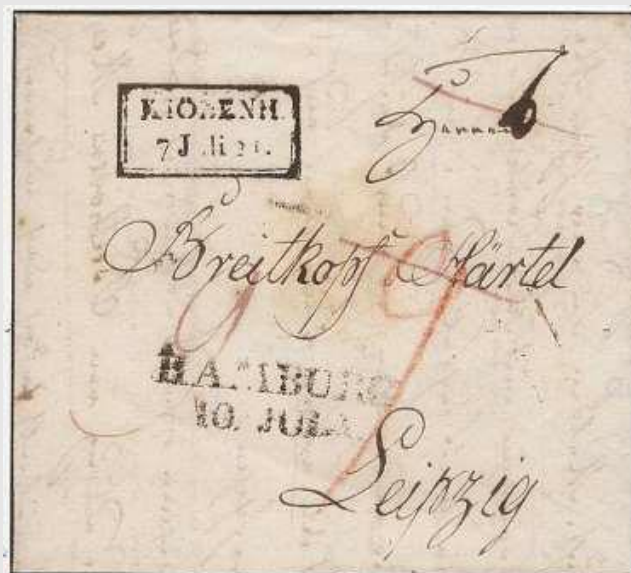 KIÖBENH.
7 Juli
Herren
Breitkopf & Härtel
HAMBURG
10. JUL.
Leipzig